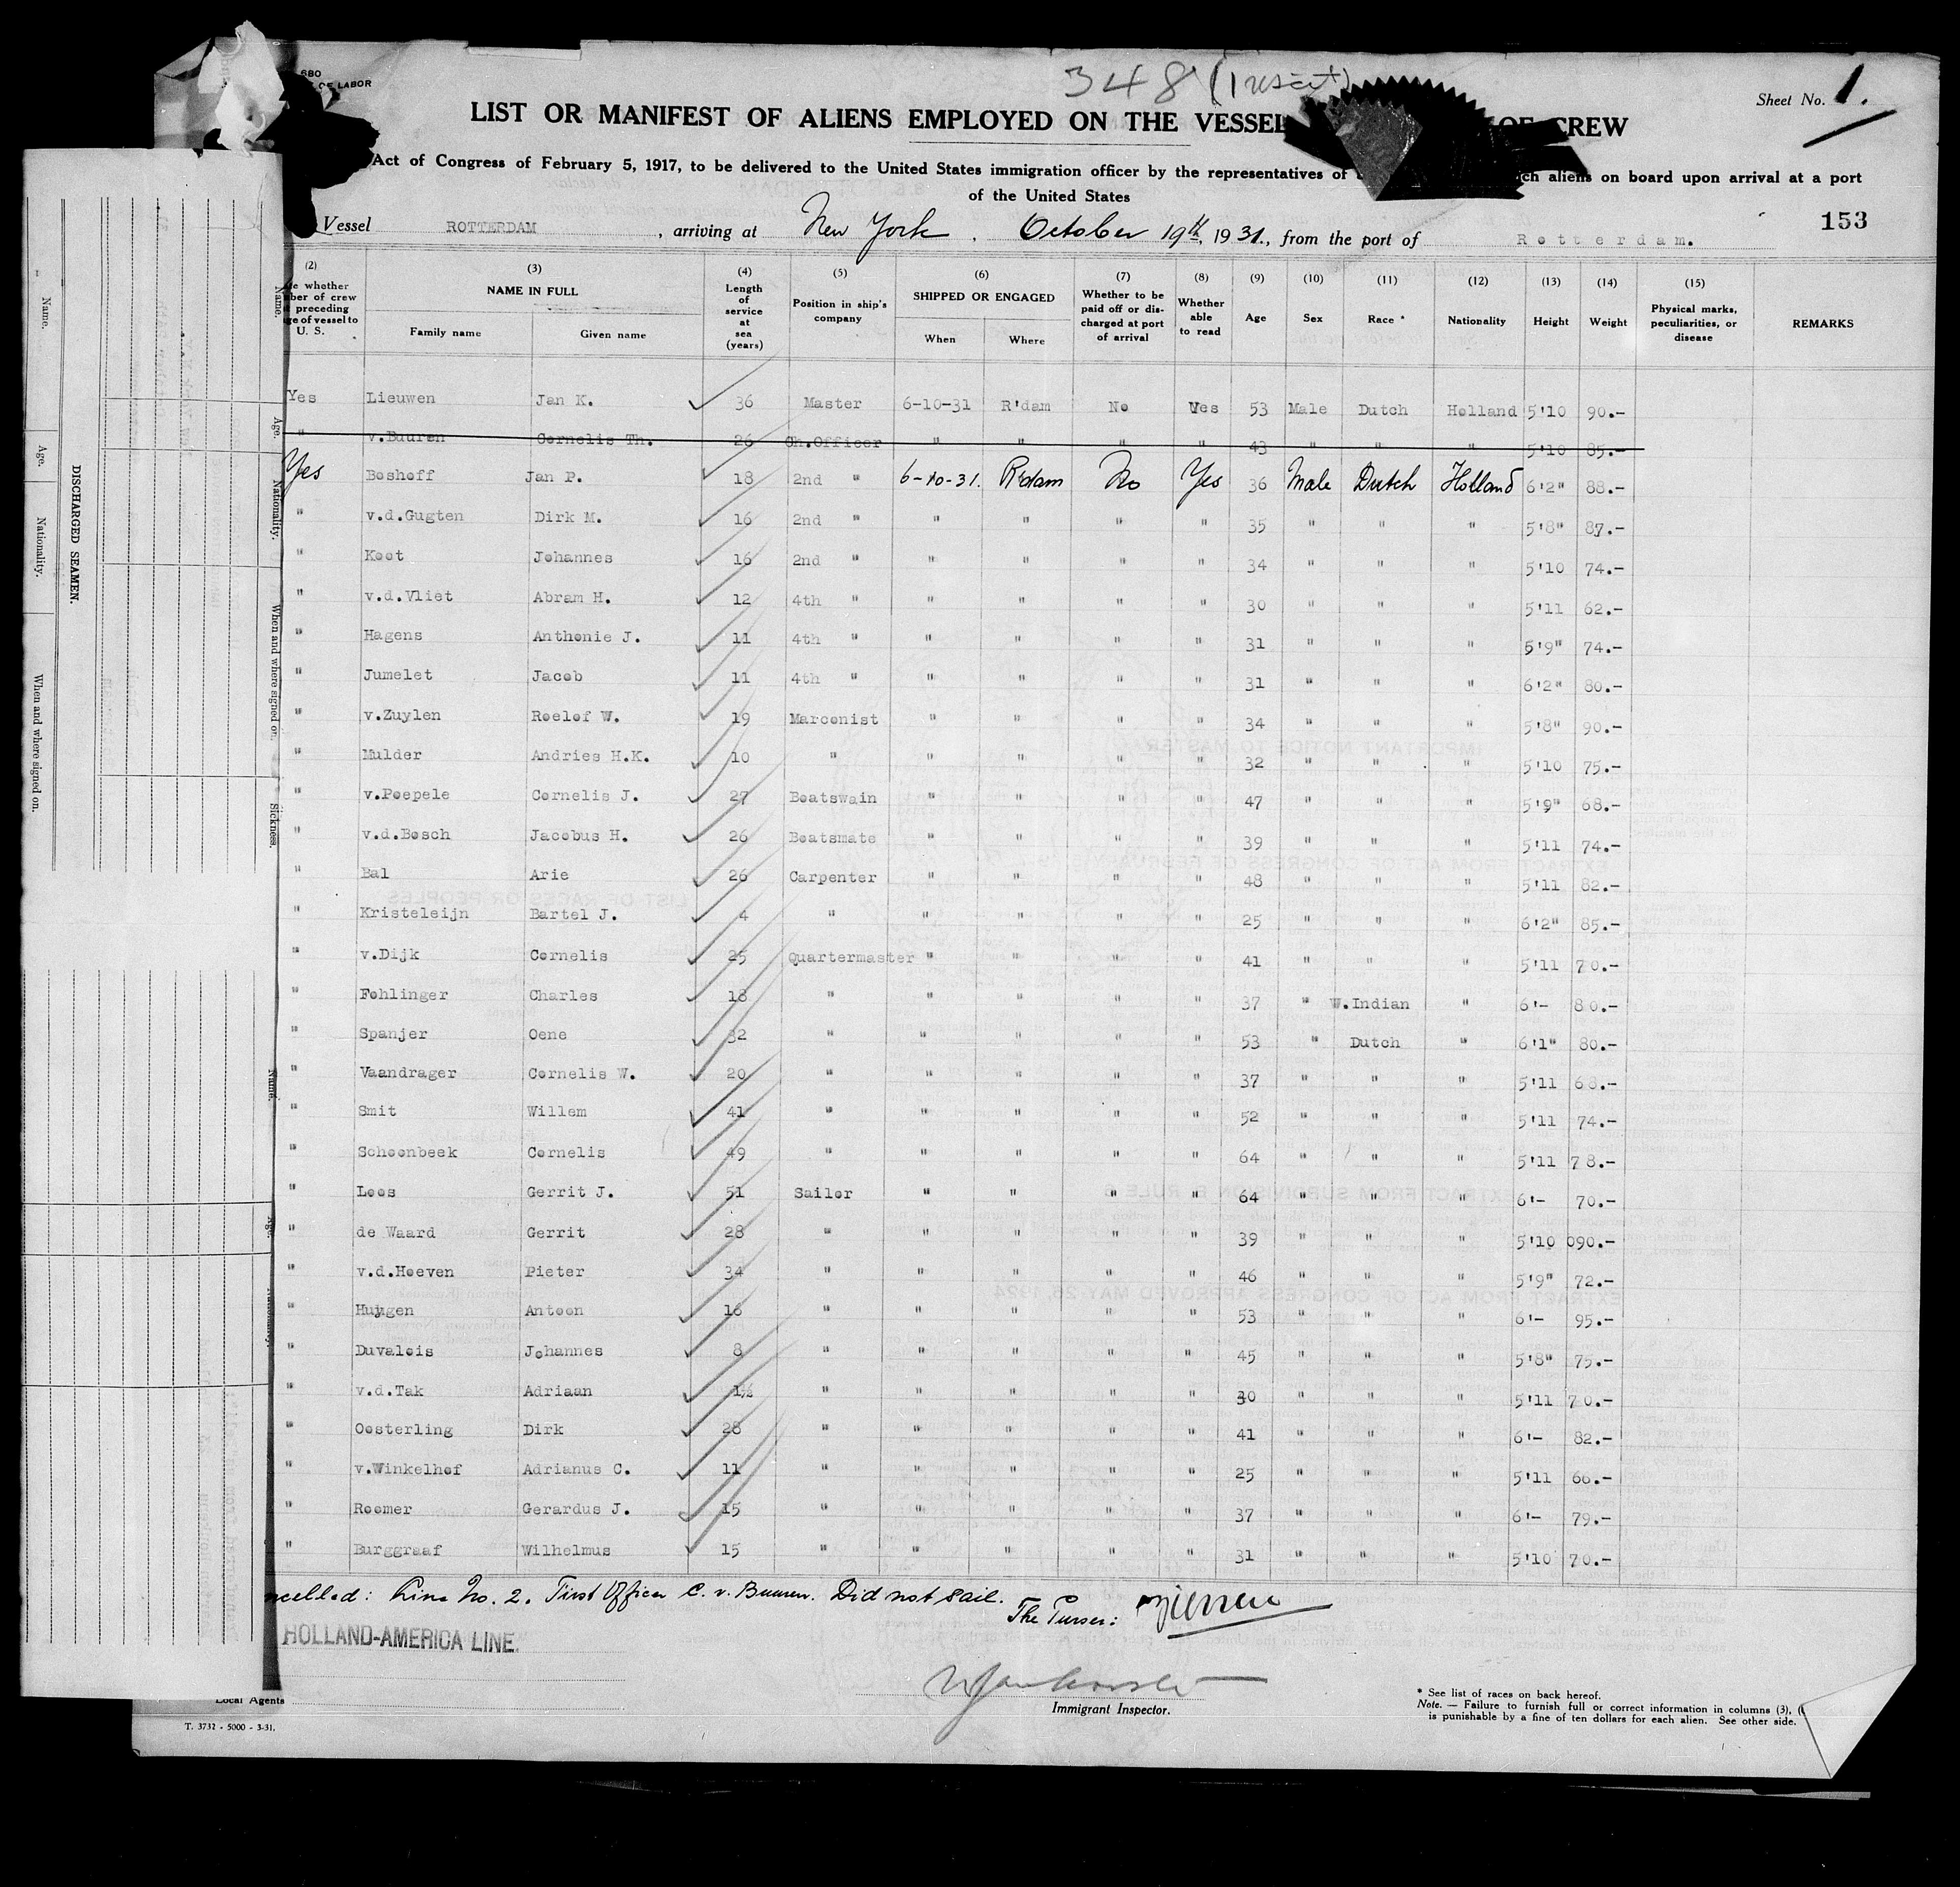 680
OF LABOR
348 (1 insert)
Sheet No. 1.
LIST OR MANIFEST OF ALIENS EMPLOYED ON THE VESSEL OF CREW
Act of Congress of February 5, 1917, to be delivered to the United States immigration officer by the representatives of ch aliens on board upon arrival at a port
of the United States
Vessel ROTTERDAM , arriving at New York , October 19th, 1931., from the port of Rotterdam.
153
(2) (3) (4) (5) (6) (7) (8) (9) (10) (11) (12) (13) (14) (15)
e whether ber of crew preceding ge of vessel to U. S. NAME IN FULL Family name Given name Length of service at sea (years) Position in ship's company SHIPPED OR ENGAGED When Where Whether to be paid off or discharged at port of arrival Whether able to read Age Sex Race * Nationality Height Weight Physical marks, peculiarities, or disease REMARKS
Yes Lieuwen Jan K. 36 Master 6-10-31 R'dam No Yes 53 Male Dutch Holland 5'10 90.-
" v.Buuren Cornelis Th. 26 Ch.Officer " " " " 43 " " " 5'10 85.-
Yes Boshoff Jan P. 18 2nd " 6-10-31. R'dam No Yes 36 Male Dutch Holland 6'2" 88.-
" v.d.Gugten Dirk M. 16 2nd " " " " " 35 " " " 5'8" 87.-
" Koot Johannes 16 2nd " " " " " 34 " " " 5'10 74.-
" v.d.Vliet Abram H. 12 4th " " " " " 30 " " " 5'11 62.-
" Hagens Anthonie J. 11 4th " " " " " 31 " " " 5'9" 74.-
" Jumelet Jacob 11 4th " " " " " 31 " " " 6'2" 80.-
" v.Zuylen Roelof W. 19 Marconist " " " " 34 " " " 5'8" 90.-
" Mulder Andries H.K. 10 " " " " " 32 " " " 5'10 75.-
" v.Poepele Cornelis J. 27 Boatswain " " " " 47 " " " 5'9" 68.-
" v.d.Bosch Jacobus H. 26 Boatsmate " " " " 39 " " " 5'11 74.-
" Bal Arie 26 Carpenter " " " " 48 " " " 5'11 82.-
" Kristeleijn Bartel J. 4 " " " " " 25 " " " 6'2" 85.-
" v.Dijk Cornelis 25 Quartermaster " " " " 41 " " " 5'11 70.-
" Fohlinger Charles 18 " " " " " 37 " W.Indian " 6'- 80.-
" Spanjer Oene 32 " " " " " 53 " Dutch " 6'1" 80.-
" Vaandrager Cornelis W. 20 " " " " " 37 " " " 5'11 68.-
" Smit Willem 41 " " " " " 52 " " " 5'11 74.-
" Schoonbeek Cornelis 49 " " " " " 64 " " " 5'11 78.-
" Loos Gerrit J. 51 Sailor " " " " 64 " " " 6'- 70.-
" de Waard Gerrit 28 " " " " " 39 " " " 5'10 090.-
" v.d.Hoeven Pieter 34 " " " " " 46 " " " 5'9" 72.-
" Huygen Antoon 16 " " " " " 53 " " " 6'- 95.-
" Duvalois Johannes 8 " " " " " 45 " " " 5'8" 75.-
" v.d.Tak Adriaan 1½ " " " " " 30 " " " 5'11 70.-
" Oosterling Dirk 28 " " " " " 41 " " " 6'- 82.-
" v.Winkelhof Adrianus C. 11 " " " " " 25 " " " 5'11 66.-
" Roomer Gerardus J. 15 " " " " " 37 " " " 6'- 79.-
" Burggraaf Wilhelmus 15 " " " " " 31 " " " 5'10 70.-
ncelled: Line No. 2. First Officer C. v. Buuren. Did not sail.
The Purser:
HOLLAND-AMERICA LINE.
Local Agents
Immigrant Inspector.
* See list of races on back hereof.
Note. — Failure to furnish full or correct information in columns (3), (
is punishable by a fine of ten dollars for each alien. See other side.
T. 3732 - 5000 - 3-31.
DISCHARGED SEAMEN.
Name. Age. Nationality. When and where signed on.
Name. Age. Nationality. When and where signed on. Sickness.
Name. Age.